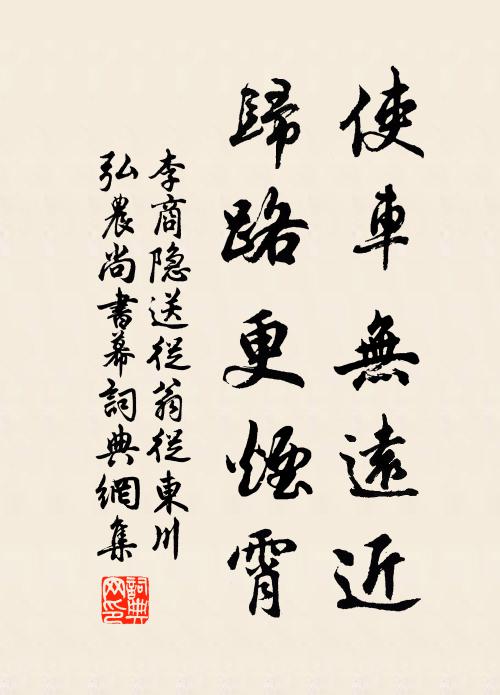 使車無遠近
歸路更煙霄
李商隐送從翁從東川
弘農尚書幕詞典網集